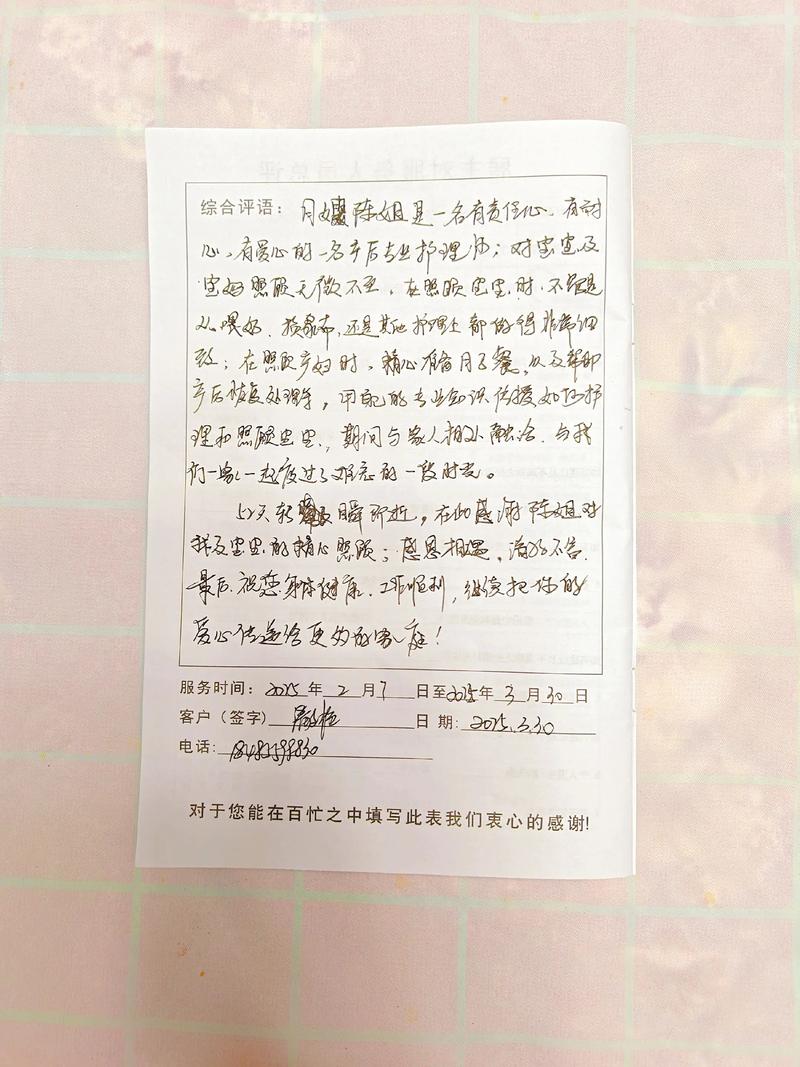 综合评语：月嫂陈姐是一名有责任心、有耐
心、有爱心的一名产后专业护理师；对宝宝及
宝妈照顾无微不至，在照顾宝宝时，不管是
从喂奶、换尿布，还是其他护理上都做得非常细
致；在照顾产妇时，精心准备月子餐，以及帮助
产后恢复处理等，用她的专业知识传授如何护
理和照顾宝宝，期间与家人相处融洽，与我
们一家人一起度过了难忘的一段时光。
52天转瞬即逝，在此感谢陈姐对
我及宝宝的精心照顾；感恩相遇，
最后，祝您身体健康、工作顺利，继续把你的
爱心传递给更多的家庭！
服务时间：2025年2月7日至2025年3月30日
客户（签字） 日期：2025.3.30
电话：
对于您能在百忙之中填写此表我们衷心的感谢!